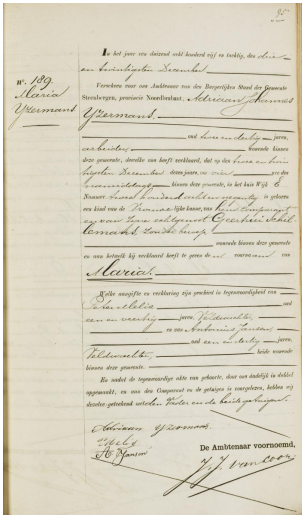 95
Nº. 189.
Maria
Yzermans
In het jaar een duizend acht honderd vijf en tachtig, den drie
en twintigsten December
Verscheen voor ons Ambtenaar van den Burgerlijken Stand der Gemeente
Steenbergen, provincie Noordbrabant, Adriaan Johannes
Yzermans,
oud twee en dertig jaren,
arbeider, wonende binnen
deze gemeente, dewelke ons heeft verklaard, dat op den twee en twin
tigsten December dezes jaars, des vier ure des
namiddags binnen deze gemeente, in het huis Wijk E
Nummer twee honderd is geboren
een kind van de Vrouwelijke kunne, van hem Comparant
en van zijne echtgenoot Geertrui Schil
lemans, zonder beroep
wonende binnen deze gemeente
en aan hetwelk hij verklaard heeft te geven de voornamen van
Maria.
Welke aangifte en verklaring zijn geschied in tegenwoordigheid van
Peter Melis oud
een en veertig jaren, Veldwachter,
en van Antonius Jansen,
oud een en dertig jaren,
Veldwachter, beide wonende
binnen deze gemeente.
En nadat de tegenwoordige akte van geboorte, door ons dadelijk in dubbel
opgemaakt, en aan den Comparant en de getuigen is voorgelezen, hebben wij
dezelve geteekend met den Vader en de beide getuigen.
Adriaan Yzermans
P Melis
A. Jansen
De Ambtenaar voornoemd,
J. J. van Loon